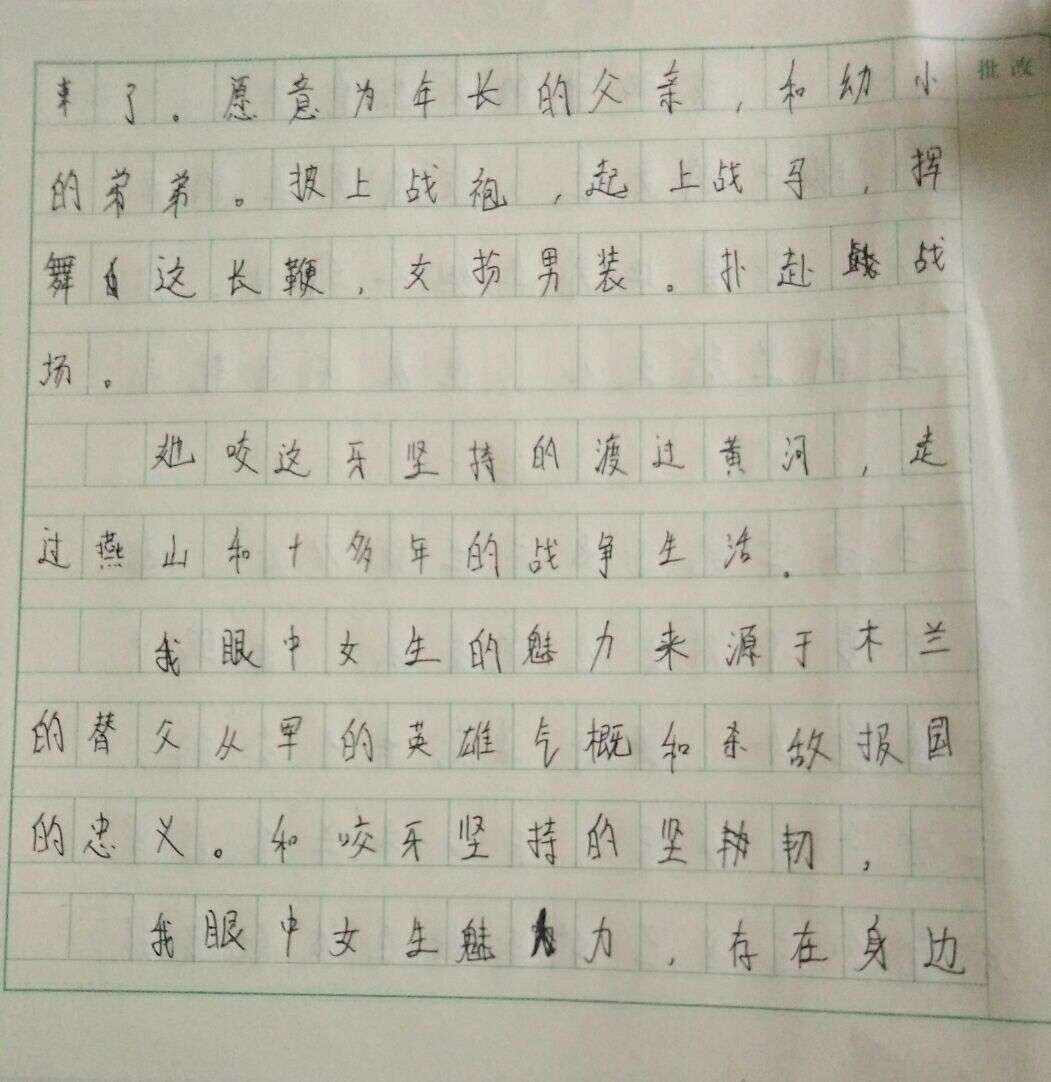 批改
来了。愿意为年长的父亲,和幼小
的弟弟。披上战袍,起上战马,挥
舞这长鞭,女扮男装。扑赴战
场。
她咬这牙坚持的渡过黄河,走
过燕山和十多年的战争生活。
我眼中女生的魅力来源于木兰
的替父从军的英雄气概和杀敌报国
的忠义。和咬牙坚持的坚韧,
我眼中女生魅力,存在身边